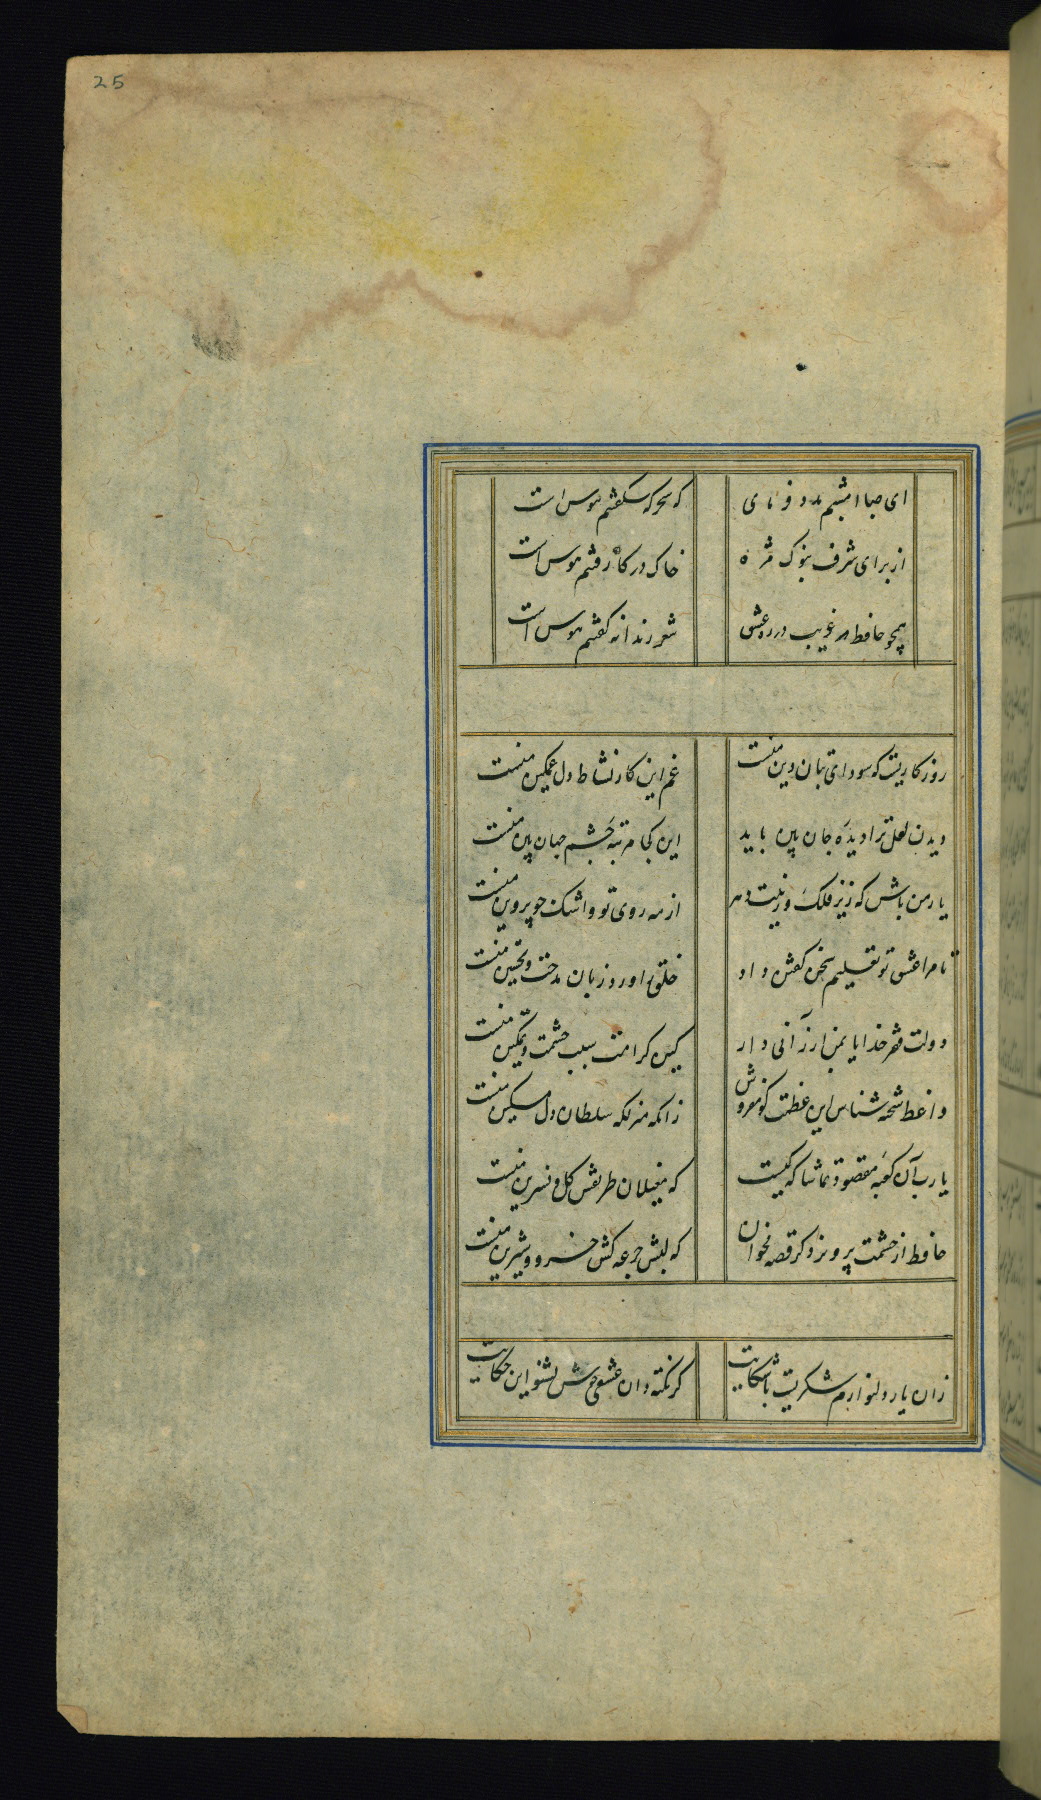 25
ای صبا امشبم مدد فرمای که سحرگه شکفتنم هوس است
از برای شرف بنوک مژه خاک درگاه رفتنم هوس است
همچو حافظ غریب در ره عشق شعر رندانه گفتنم هوس است
روزگاریست که سودای بتان دین منست غم این کار نشاط دل غمگین منست
دیدن لعل ترا دیده جان بین باید این کجا مرتبه چشم جهان بین منست
یار من باش که زیب فلک و زینت دهر از مه روی تو و اشک چو پروین منست
تا مرا عشق تو تعلیم سخن گفتن داد خلق را ورد زبان مدحت و تحسین منست
دولت فقر خدایا بمن ارزانی دار کین کرامت سبب حشمت و تمکین منست
واعظ شحنه شناس این عظمت گو مفروش زانکه منزلگه سلطان دل مسکین منست
یا رب آن کعبه مقصود تماشاگه کیست که مغیلان طریقش گل و نسرین منست
حافظ از حشمت پرویز دگر قصه مخوان که لبش جرعه کش خسرو و شیرین منست
زان یار دلنوازم شکریست با شکایت گر نکته دان عشقی خوش بشنو این حکایت